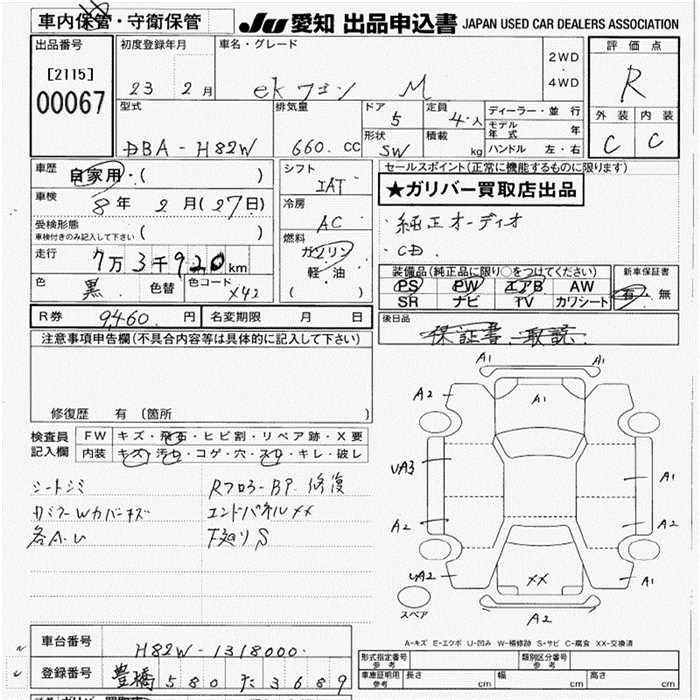 車内保管・守衛保管
JU 愛知 出品申込書 JAPAN USED CAR DEALERS ASSOCIATION
出品番号
[2115]
00067
初度登録年月
23 2月
車名・グレード
ekワゴン M
2WD
・
4WD
評価点
R
外装 内装
C C
型式
DBA-H82W
排気量
660.cc
ドア
5
定員
4.人
形状
SW
積載
kg
ディーラー・並行
モデル年式 年
ハンドル 左・右
車歴
自家用・( )
車検
8年 2月(27日)
受検形態
車検付きのみ記入して下さい ( )
走行
7万3千920km
色
黒
色替
色コード
X42
シフト
IAT
冷房
AC
燃料
ガソリン
軽・油
( )
セールスポイント(正常に機能するものに限ります)
★ガリバー買取店出品
・純正オーディオ
・CD
装備品(純正品に限り○をつけてください)
PS PW エアB AW
SR ナビ TV カワシート
新車保証書
有・無
R券 9,460.円
名変期限 月 日
後日品
保証書.取説.
注意事項申告欄(不具合内容等は具体的に記入して下さい)
修復歴 有(箇所 )
検査員
記入欄
FW キズ・飛石・ヒビ割・リペア跡・X要
内装 キズ・汚れ・コゲ・穴・スレ・キレ・破レ
シートシミ
各A.U
Rフロアー
修復
エンドパネルXX
下廻りS
A1
A1
A2
A1
UA3
A1
A2
A2
UA2
XX
A1
A2
スペア
A-キズ E-エクボ U-凹み W-補修跡 S-サビ C-腐食 XX-交換済
車台番号
H82W-1318000.
登録番号
豊橋 580 た 3689
形式指定番号
参考
類別区分番号
参考
車庫証明用
参考
長さ cm
幅 cm
高さ cm